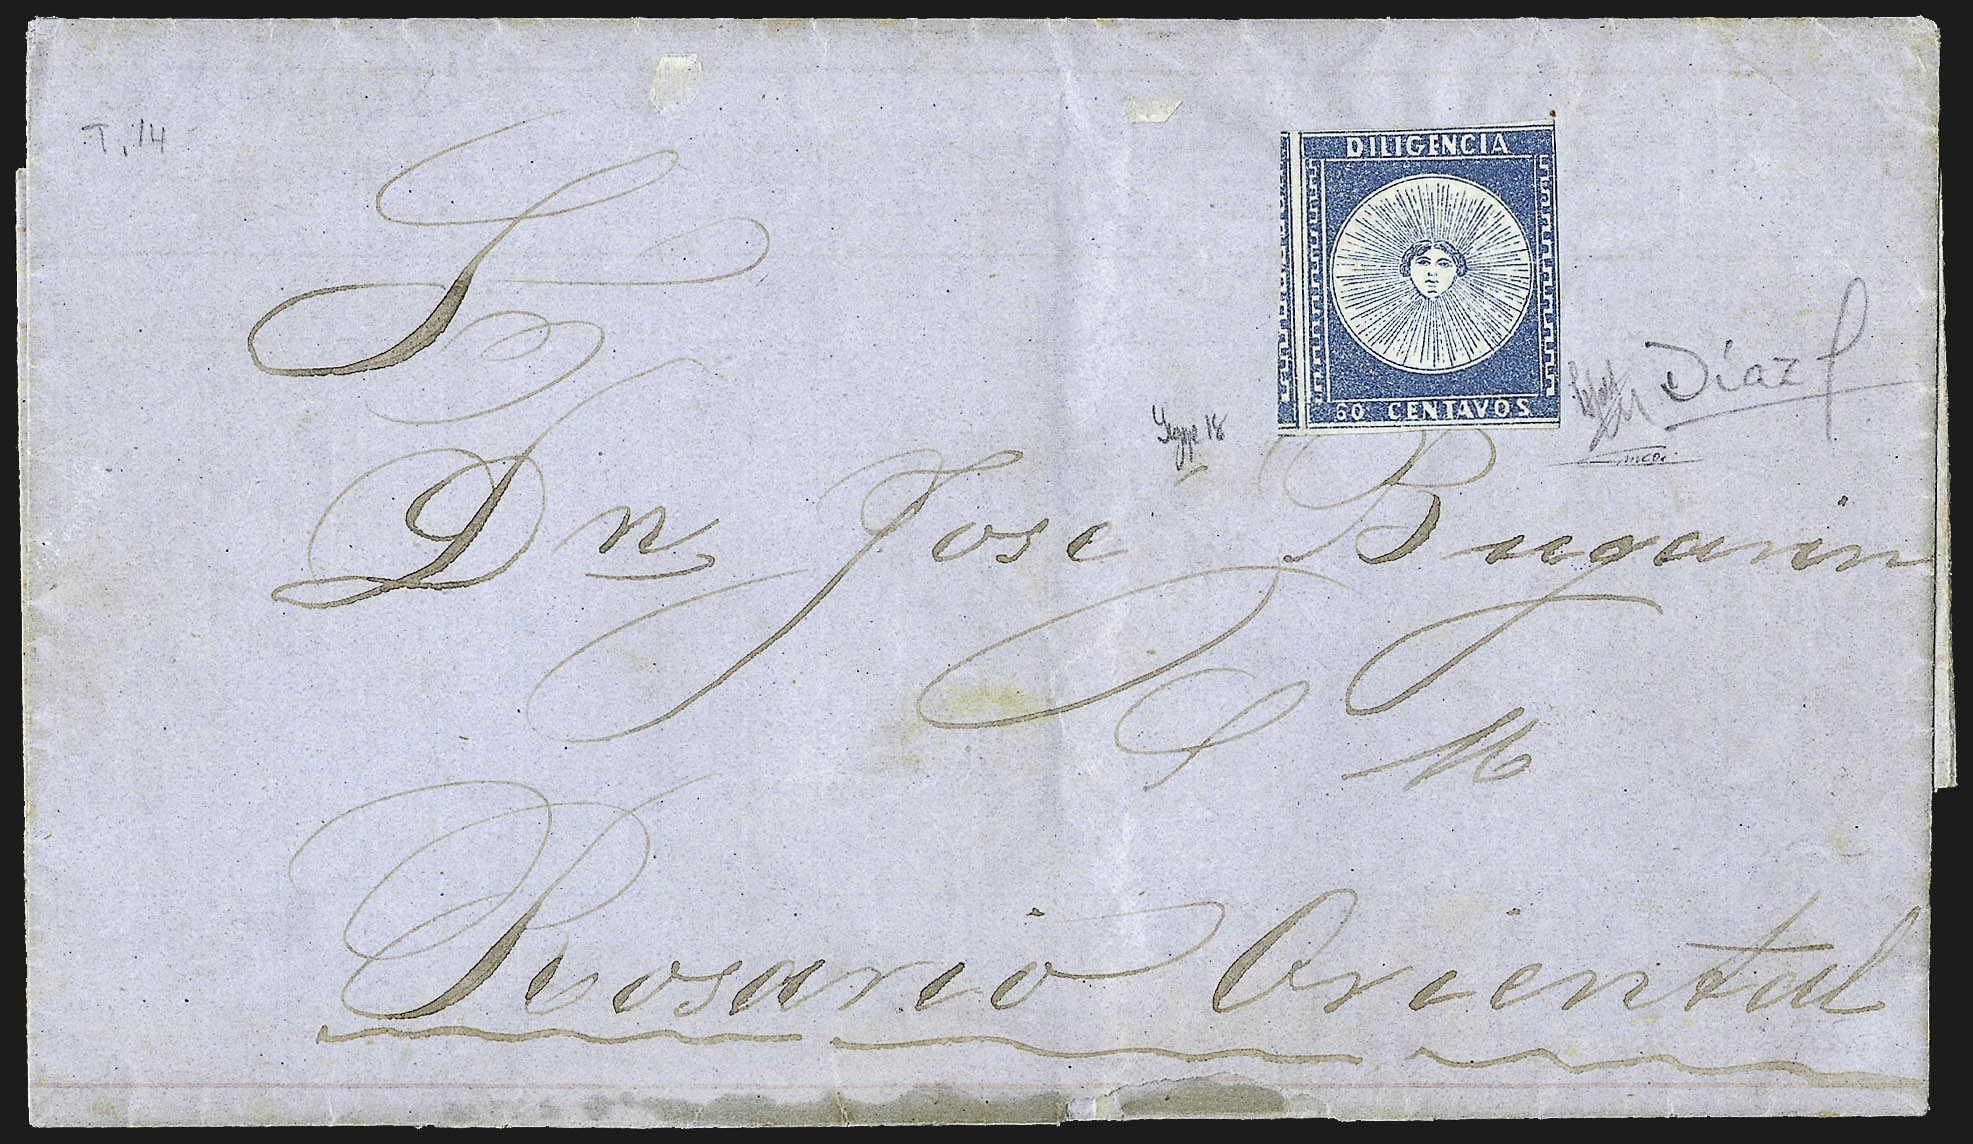 T. 14
DILIGENCIA
60 CENTAVOS
Díaz
S
Dn Jose Bugarin
M
Rosario Oriental